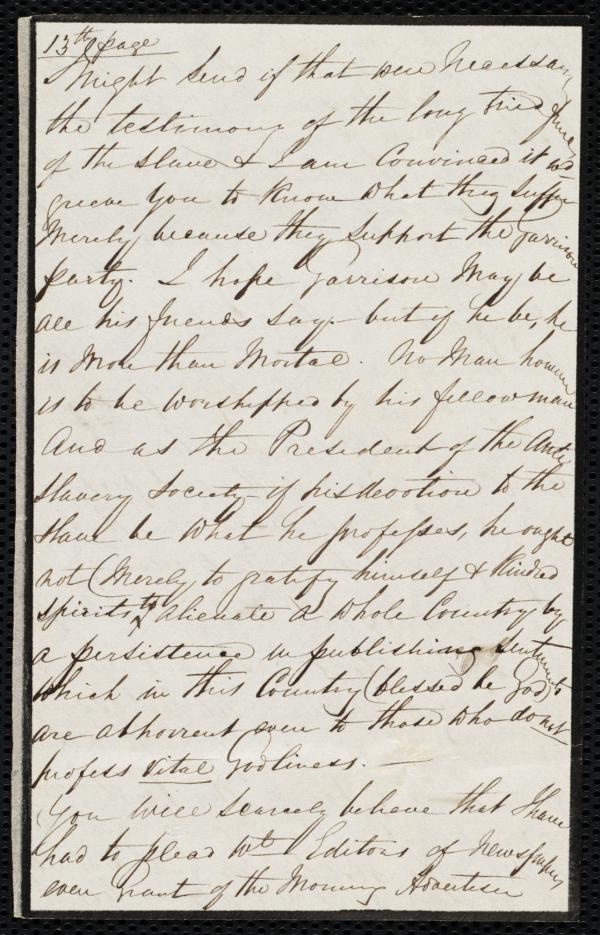 13th page
I might send if that were necessary
the testimony of the long tried friends
of the slave & I am convinced it wd
grieve you to know what they suffer
merely because they support the Garrison
party. I hope Garrison may be
all his friends say - but if he be, he
is more than mortal. No man however
is to be worshipped by his fellow man
And as the President of the Anti
Slavery Society - if his devotion to the
slave be what he professes, he ought
not (merely to gratify himself & kindred
spirits to alienate a whole Country by
a persistence in publishing sentiments
which in this Country (blessed be God)
are abhorrent even to those who do not
profess vital Godliness. —
(You will scarcely believe that I have
had to plead wth Editors of Newspapers
even Grant of the Morning Advertiser